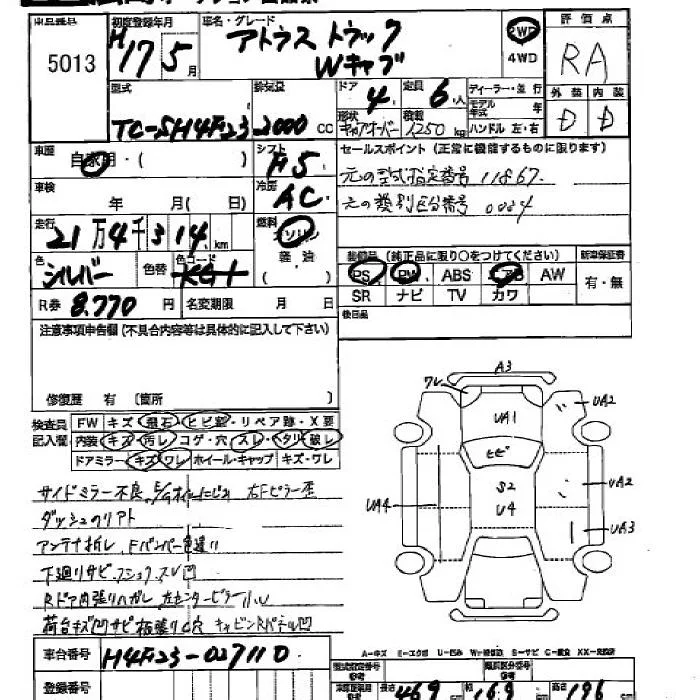 出品番号 初度登録年月 車名・グレード 評価点
5013 H17 5月 アトラストラック Wキャブ 2WD 4WD RA
型式 排気量 ドア 定員 ディーラー・並行 外装 内装
TC-SH4F23 2000 cc 4 6人 モデル年式 年 D D
形状 キャブオーバー 積載 1250 kg ハンドル 左・右
車歴 自家用・( ) シフト F5 セールスポイント(正常に機能するものに限ります)
元の型式指定番号 11867.
車検 年 月(日) 冷房 AC 元の類別区分番号 0004
走行 21万4千314 km 燃料 ガソリン 軽油 ( )
装備品(純正品に限り○をつけてください) 新車保証書
色 シルバー 色替 色コード KG1 PS PW ABS エアB AW 有・無
SR ナビ TV カワ
R券 8,770 円 名変期限 月 日 後日品
注意事項申告欄(不具合内容等は具体的に記入して下さい)
修復歴 有 〔箇所 〕
検査員記入欄 FW キズ・飛石・ヒビ割・リペア跡・X要
内装 キズ・汚レ・コゲ・穴・スレ・ヘタリ・破レ
ドアミラー キズ・ワレ ホイール・キャップ キズ・ワレ
サイドミラー不良 右Fピラー歪
ダッシュのリアト
アンテナ折レ Fバンパー色違り
下廻りサビ フショク スレ凹
Rドア内張りハガレ 左センターピラー
荷台キズ凹サビ 板張り穴 キャビンRパネル凹
A3
ワレ
UA1
UA2
ヒビ
S2
U4
UA2
UA4
UA3
A-キズ E-エクボ U-凹み W-補修跡 S-サビ C-腐食 XX-交換済
車台番号 H4F23-027110
型式指定番号 類別区分番号
登録番号 長さ 469 幅 169 高さ 196